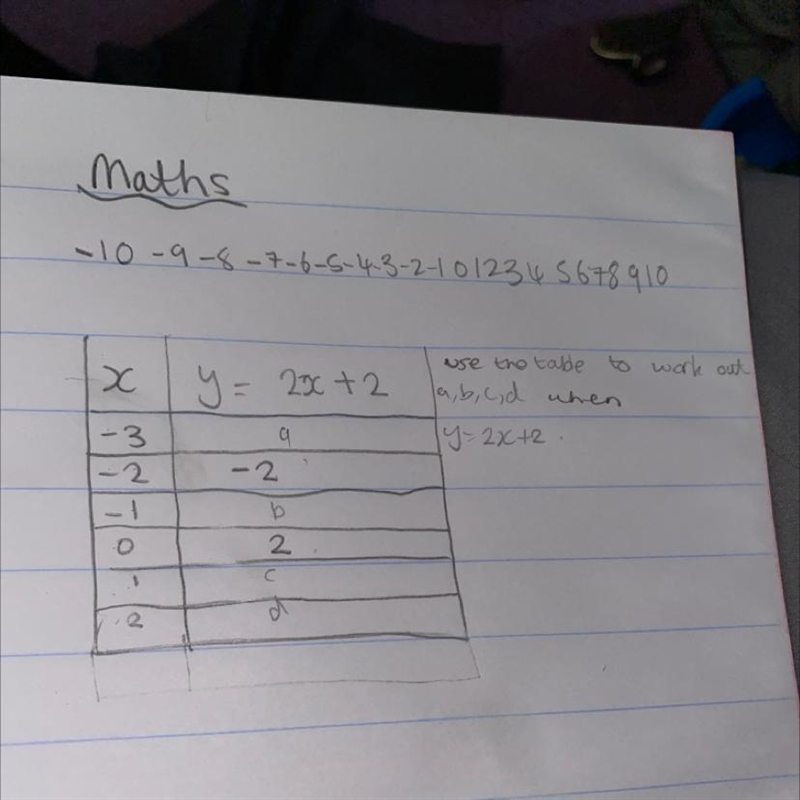 Maths
-10 -9 -8 -7 -6 -5 -4 -3 -2 -1 0 1 2 3 4 5 6 7 8 9 10
x y = 2x + 2
-3 a
-2 -2
-1 b
0 2
1 c
2 d
use the table to work out
a, b, c, d when
y = 2x + 2.